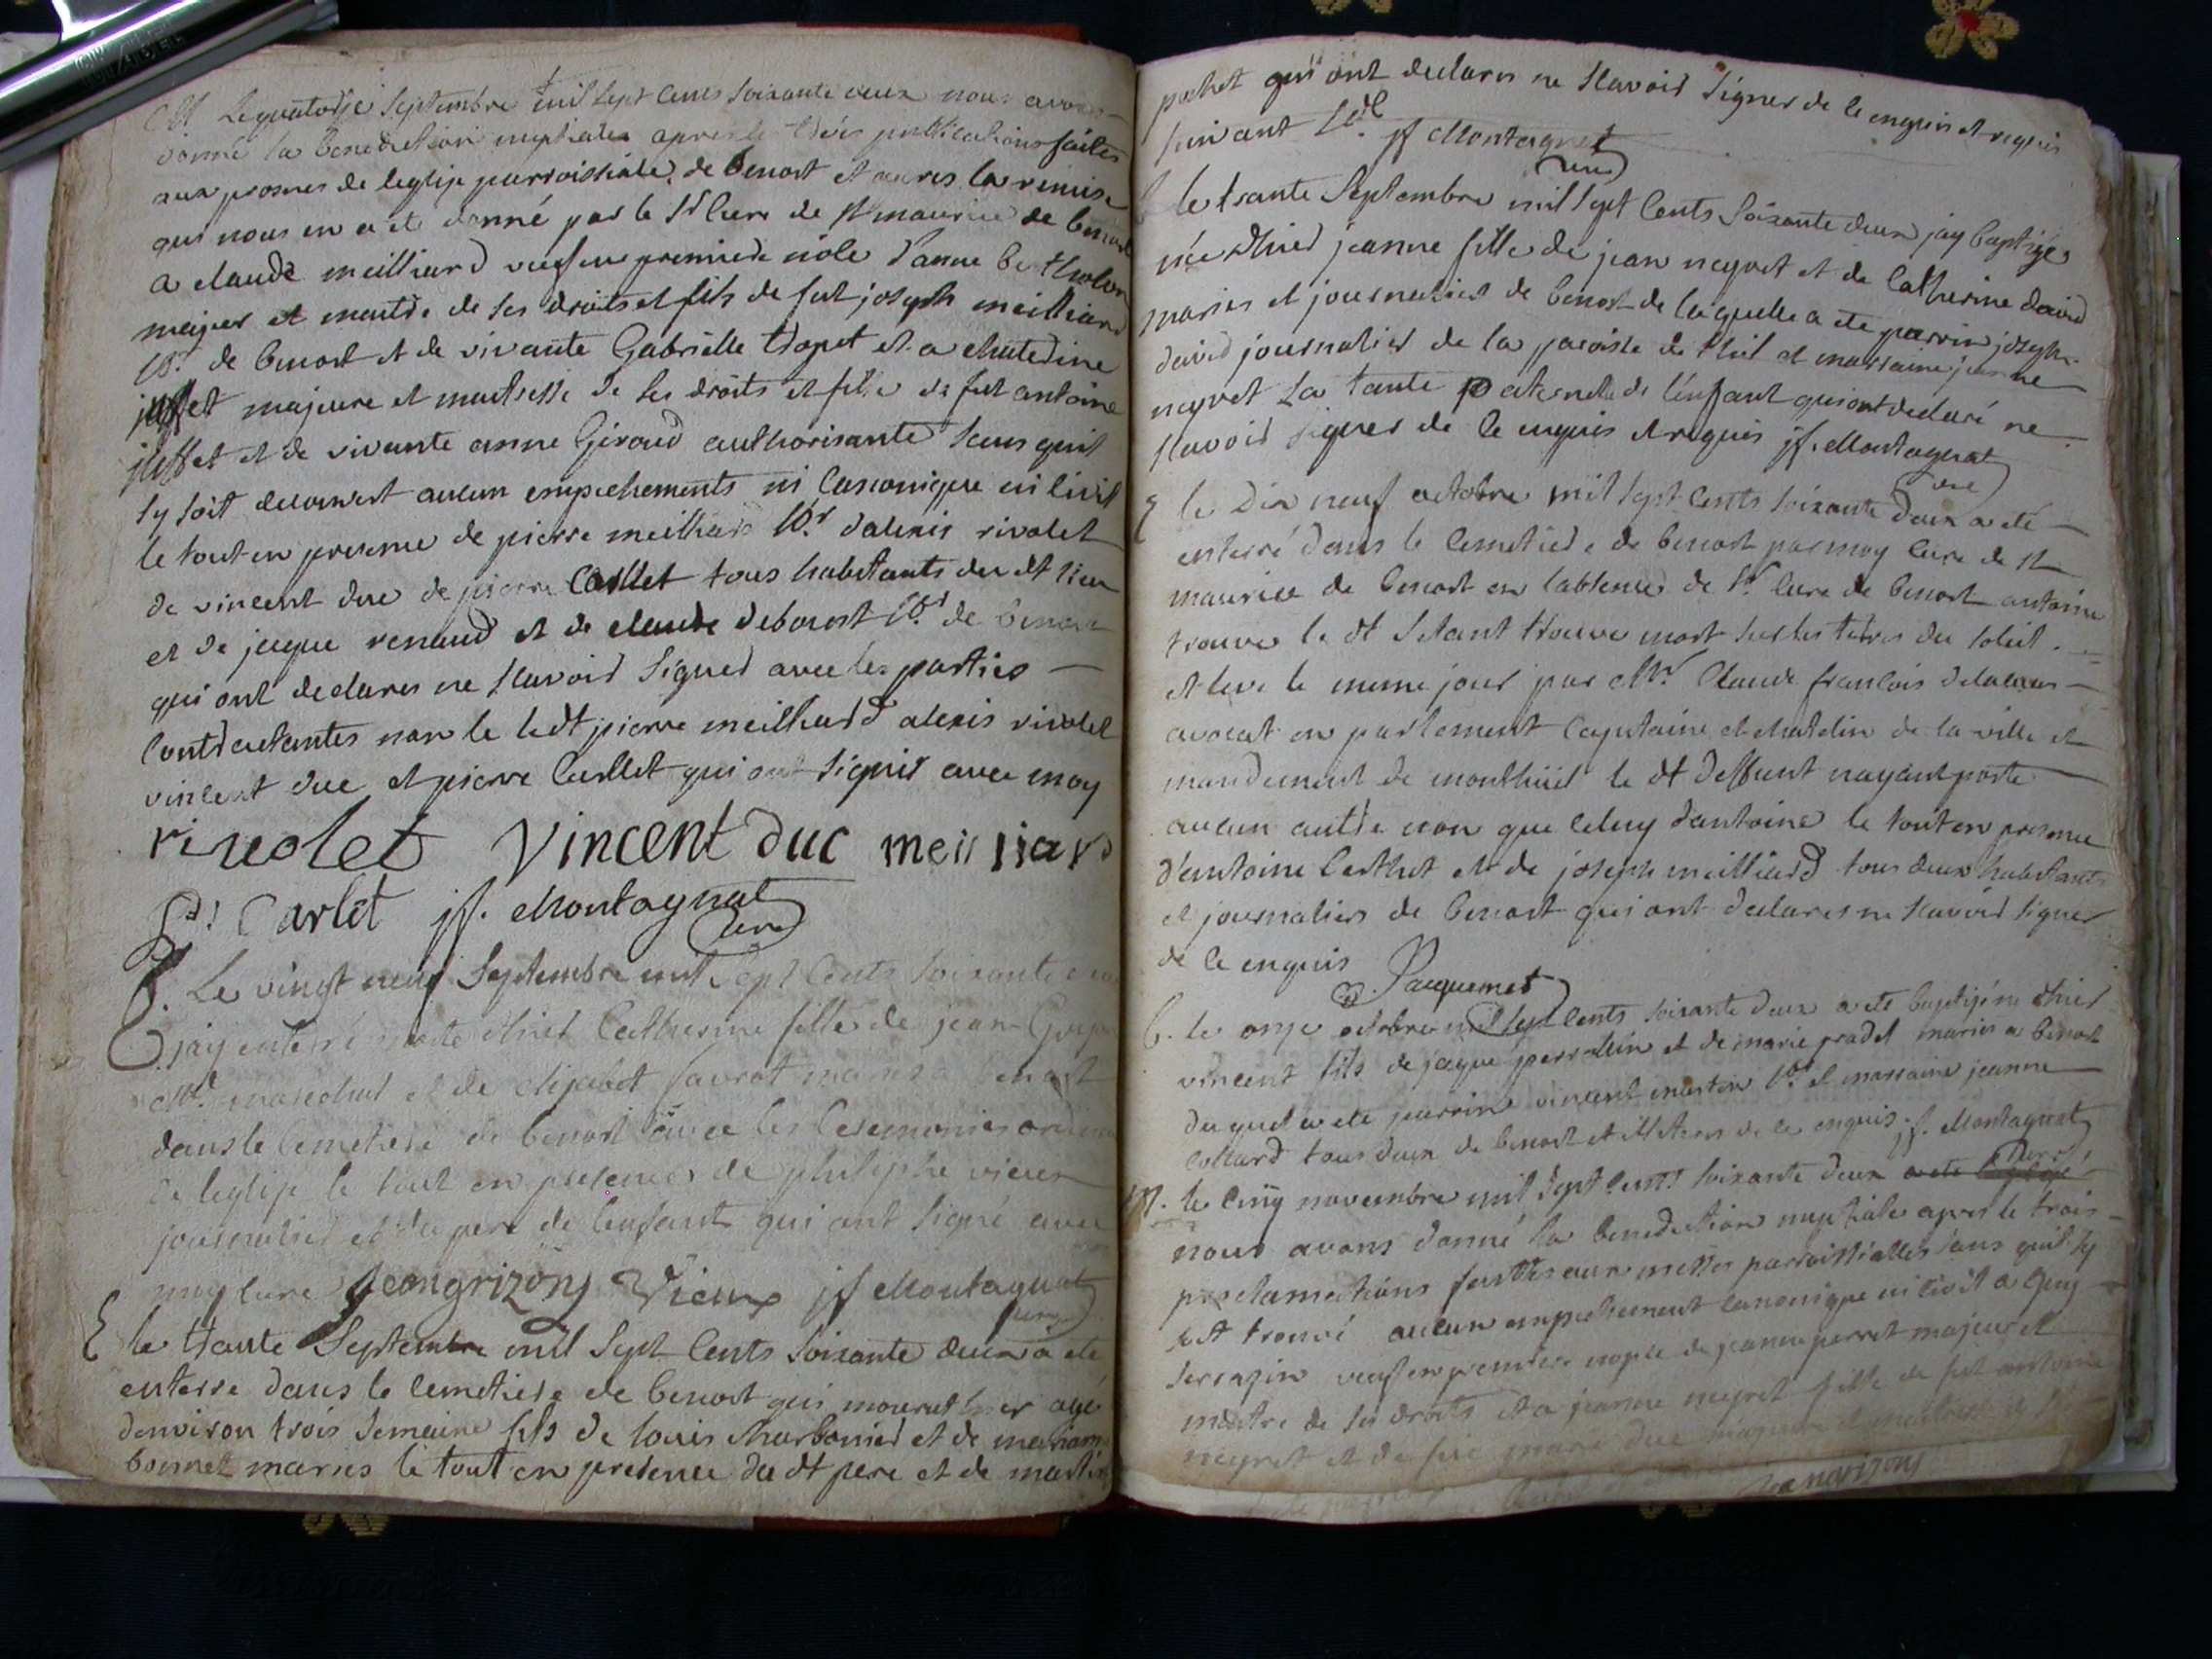 M. Le quatorze Septembre mil sept cens soixante deux nous avons
donné la benediction nuptiale apres le trois publications faites
aux prosnes de leglise parroissiale de benost et aures la remise
qui nous en a ete donné par le Sr Cure de St maurice de benost
a claude meilliard veuf en premiere nole d'anne bertholon
majeur et maitre de ses droits et fils de fut joseph meilliard
de benost et de vivante Gabrielle tropet et a
juffet majeure et maitresse de ses droits et fille de fut antoine
juffet et de vivante anne Giroud authorisante sans quil
sy soit decouvert aucun empechements ni Canonique ni Civil
le tout en presence de pierre meilliard d'alexis rivolet
de vincent duc de pierre Carllet tous habitants du dt lieu
et de jaque renaud et de claude debourst de benost
qui ont declares ne scavoir signer avec les parties
Contractantes non le ledt pierre meilhard alexis rivolet
vincent duc et pierre Carllet qui ont signés avec moy
rivolet Vincent Duc meilliard
Carlet jf. Montagnat
Cure
Le vingt neuf Septembre mil sept Cents soixante
jay enterré Catherine fille de jean
marechal et de elizabet favrot maries a benost
dans le Cemetiere de benost avec les Ceremonies
de leglise le tout en presence de philiphe vieux
journalier et du pere de lenfant qui ont signé avec
moy Cure jeangrizon Vieux jf Montagnat
Cure
E le trante Septembre mil Sept Cents Soixante deux a ete
enterre dans le Cemetiere de benost qui mourut hier agé
denviron trois Semaine fils de louis charbonier et de
bonnet maries le tout en presence du dt pere et de martin
pochet qui ont declares ne scavoir signer de le enquis et requis
suivant jf Montagnat
Cure
le trante Septembre mil Sept Cents Soixante deux jay baptizé
née hier jeanne fille de jean neyret et de Catherine david
maries et journaliers de benost de laquelle a ete parrin joseph
david journalier de la paroisse de thil et marraine jeanne
neyret sa tante paternele de lenfant qui ont declaré ne
scavoir signer de le enquis et requis jf. Montagnat
Cure
E le Dix neuf octobre mil Sept Cents soixante deux a eté
enterré dans le Cemetiere de benost par moy Cure de St
maurice de benost en labsence de Sr Cure de benost antoine
trouve le dt Setant trouve mort sur les terres du
et leve le meme jour par Mr Claude francois
avocat en parlement Capitaine et chatelin de la ville et
mandement de montluel le dt deffunt nayant porté
aucun autre nom que Celuy d'antoine le tout en presence
d'antoine berthet et de joseph meilliard tous deux habitants
et journaliers de benost qui ont declares ne scavoir signer
de le enquis
Jacquemet
b. le onze octobre mil sept Cents soixante deux a ete baptizé né hier
vincent fils de jaque perrollin et de marie pradel maries a benost
duquel a ete parrin vincent martin et marraine jeanne
Collard tous deux de benost et illiteres de le enquis jf. Montagnat
Cure
M. le Cinq novembre mil Sept Cents soixante deux a ete baptizé
nous avons donné la benediction nuptiale apres le trois
proclamations faittes aux messes parroissialles sans quil sy
soit trouvé aucun empechement Canonique ni Civil a Guy
Serrazin veuf en premiere nople de jeanne perret majeur et
maitre de ses droits et a jeanne neyret fille de fut antoine
neyret et de marie duc majeure et maitresse de